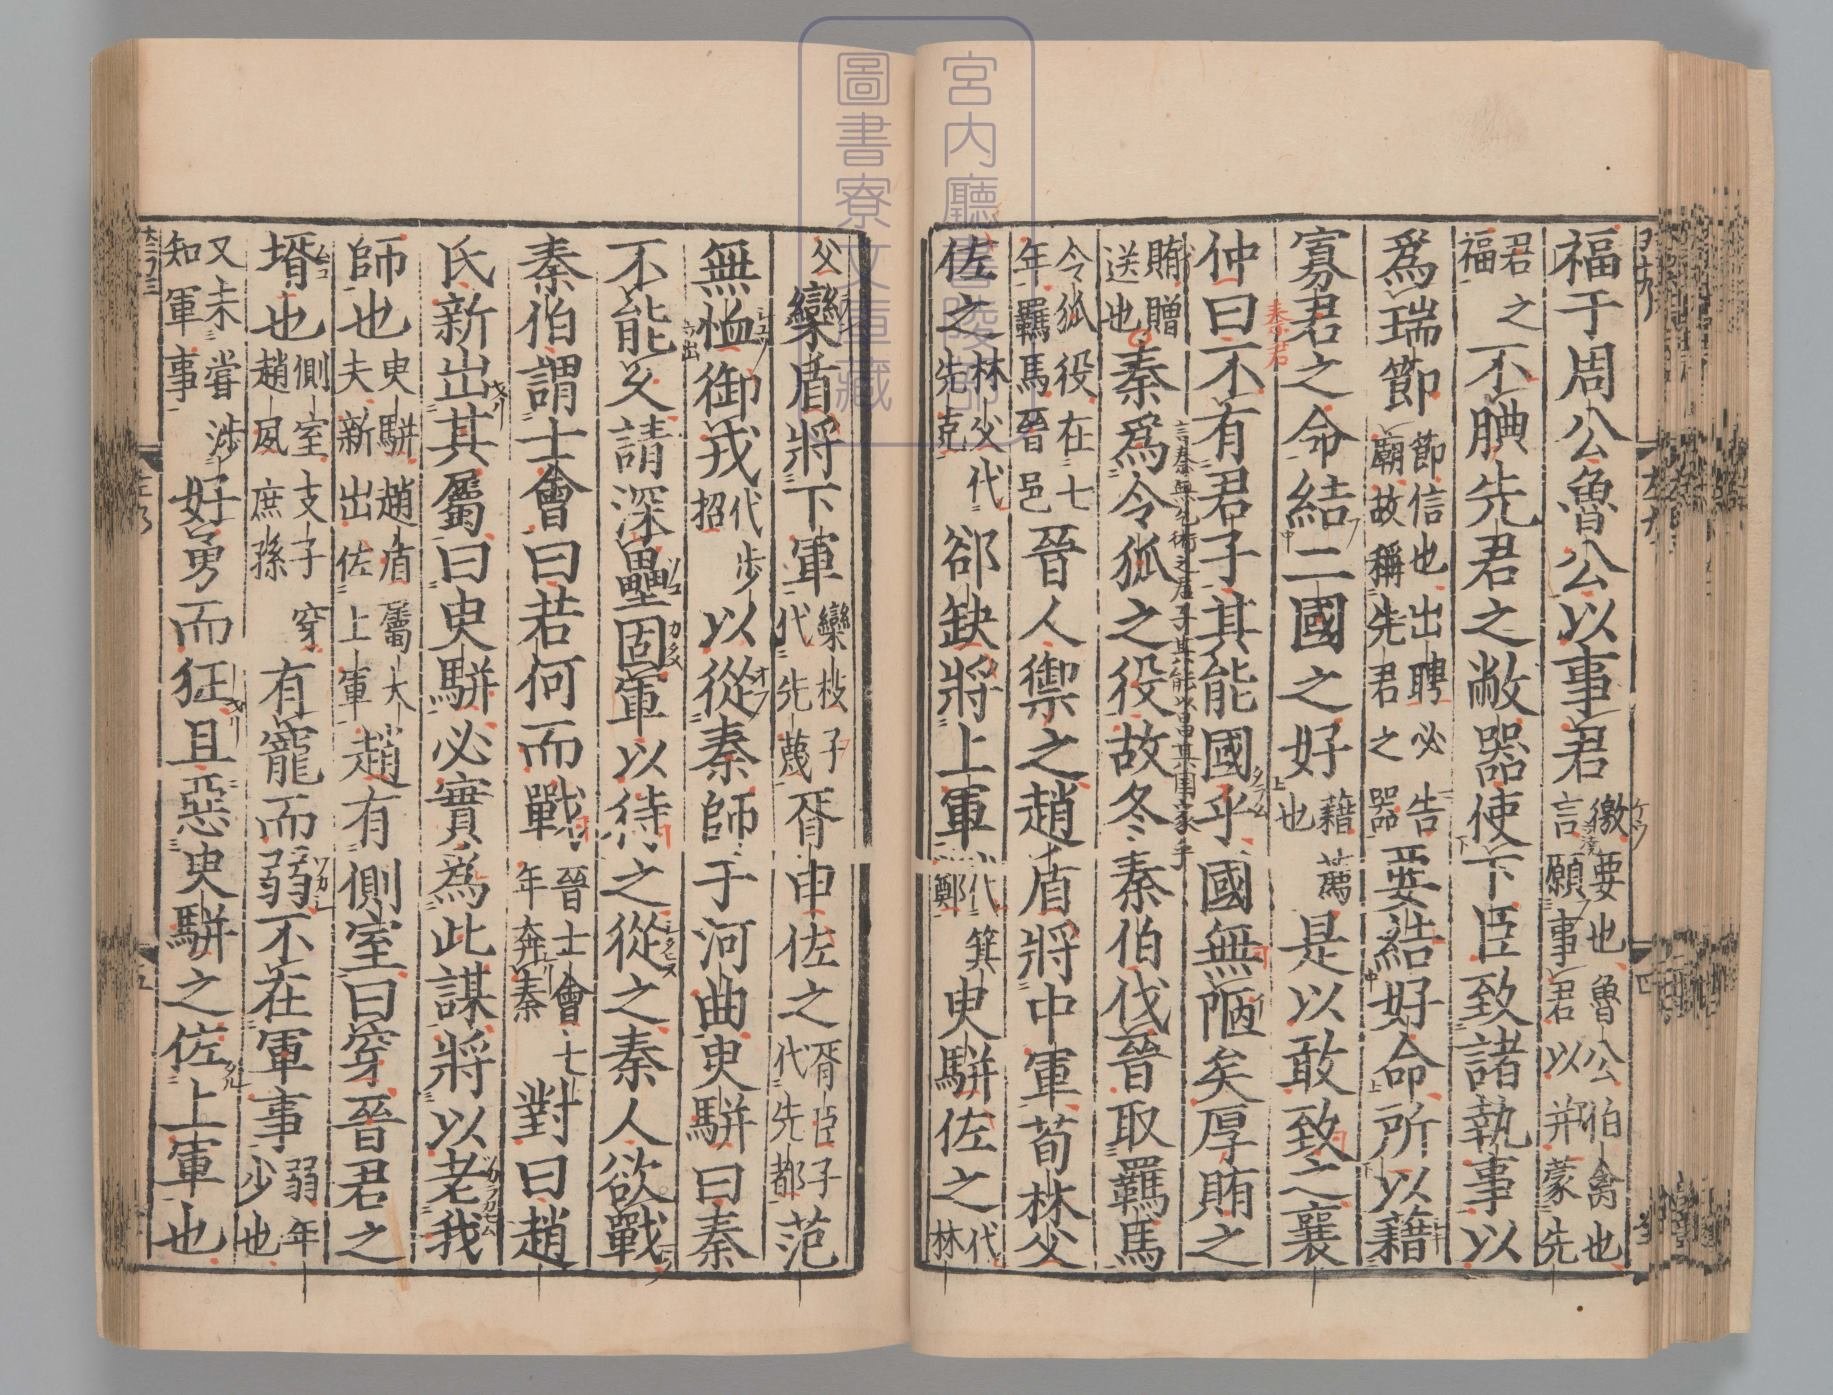 福于周公魯公以事君徼要也魯公伯禽也言願事君以并蒙先
君之福不腆先君之敝器使下臣致諸執事以
爲瑞節節信也出聘必告廟故稱先君之器要結好命所以藉
寡君之命結二國之好藉薦也是以敢致之襄
仲曰不有君子其能國乎國無陋矣厚賄之
賄贈送也秦爲令狐之役故冬秦伯伐晉取羈馬
令狐役在七年羈馬晉邑晉人禦之趙盾將中軍荀林父
佐之林父代先克郤缺將上軍代箕鄭臾駢佐之代林
父欒盾將下軍欒枝子代先蔑胥申佐之胥臣子代先都范
無恤御戎代步招以從秦師于河曲臾駢曰秦
不能久請深壘固軍以待之從之秦人欲戰
秦伯謂士會曰若何而戰晉士會七年奔秦對曰趙
氏新出其屬曰臾駢必實爲此謀將以老我
師也臾駢趙盾屬大夫新出佐上軍趙有側室曰穿晉君之
壻也側室支子穿趙夙庶孫有寵而弱不在軍事弱年少也
又未嘗涉知軍事好勇而狂且惡臾駢之佐上軍也
宮内廳書陵部
圖書寮文庫藏